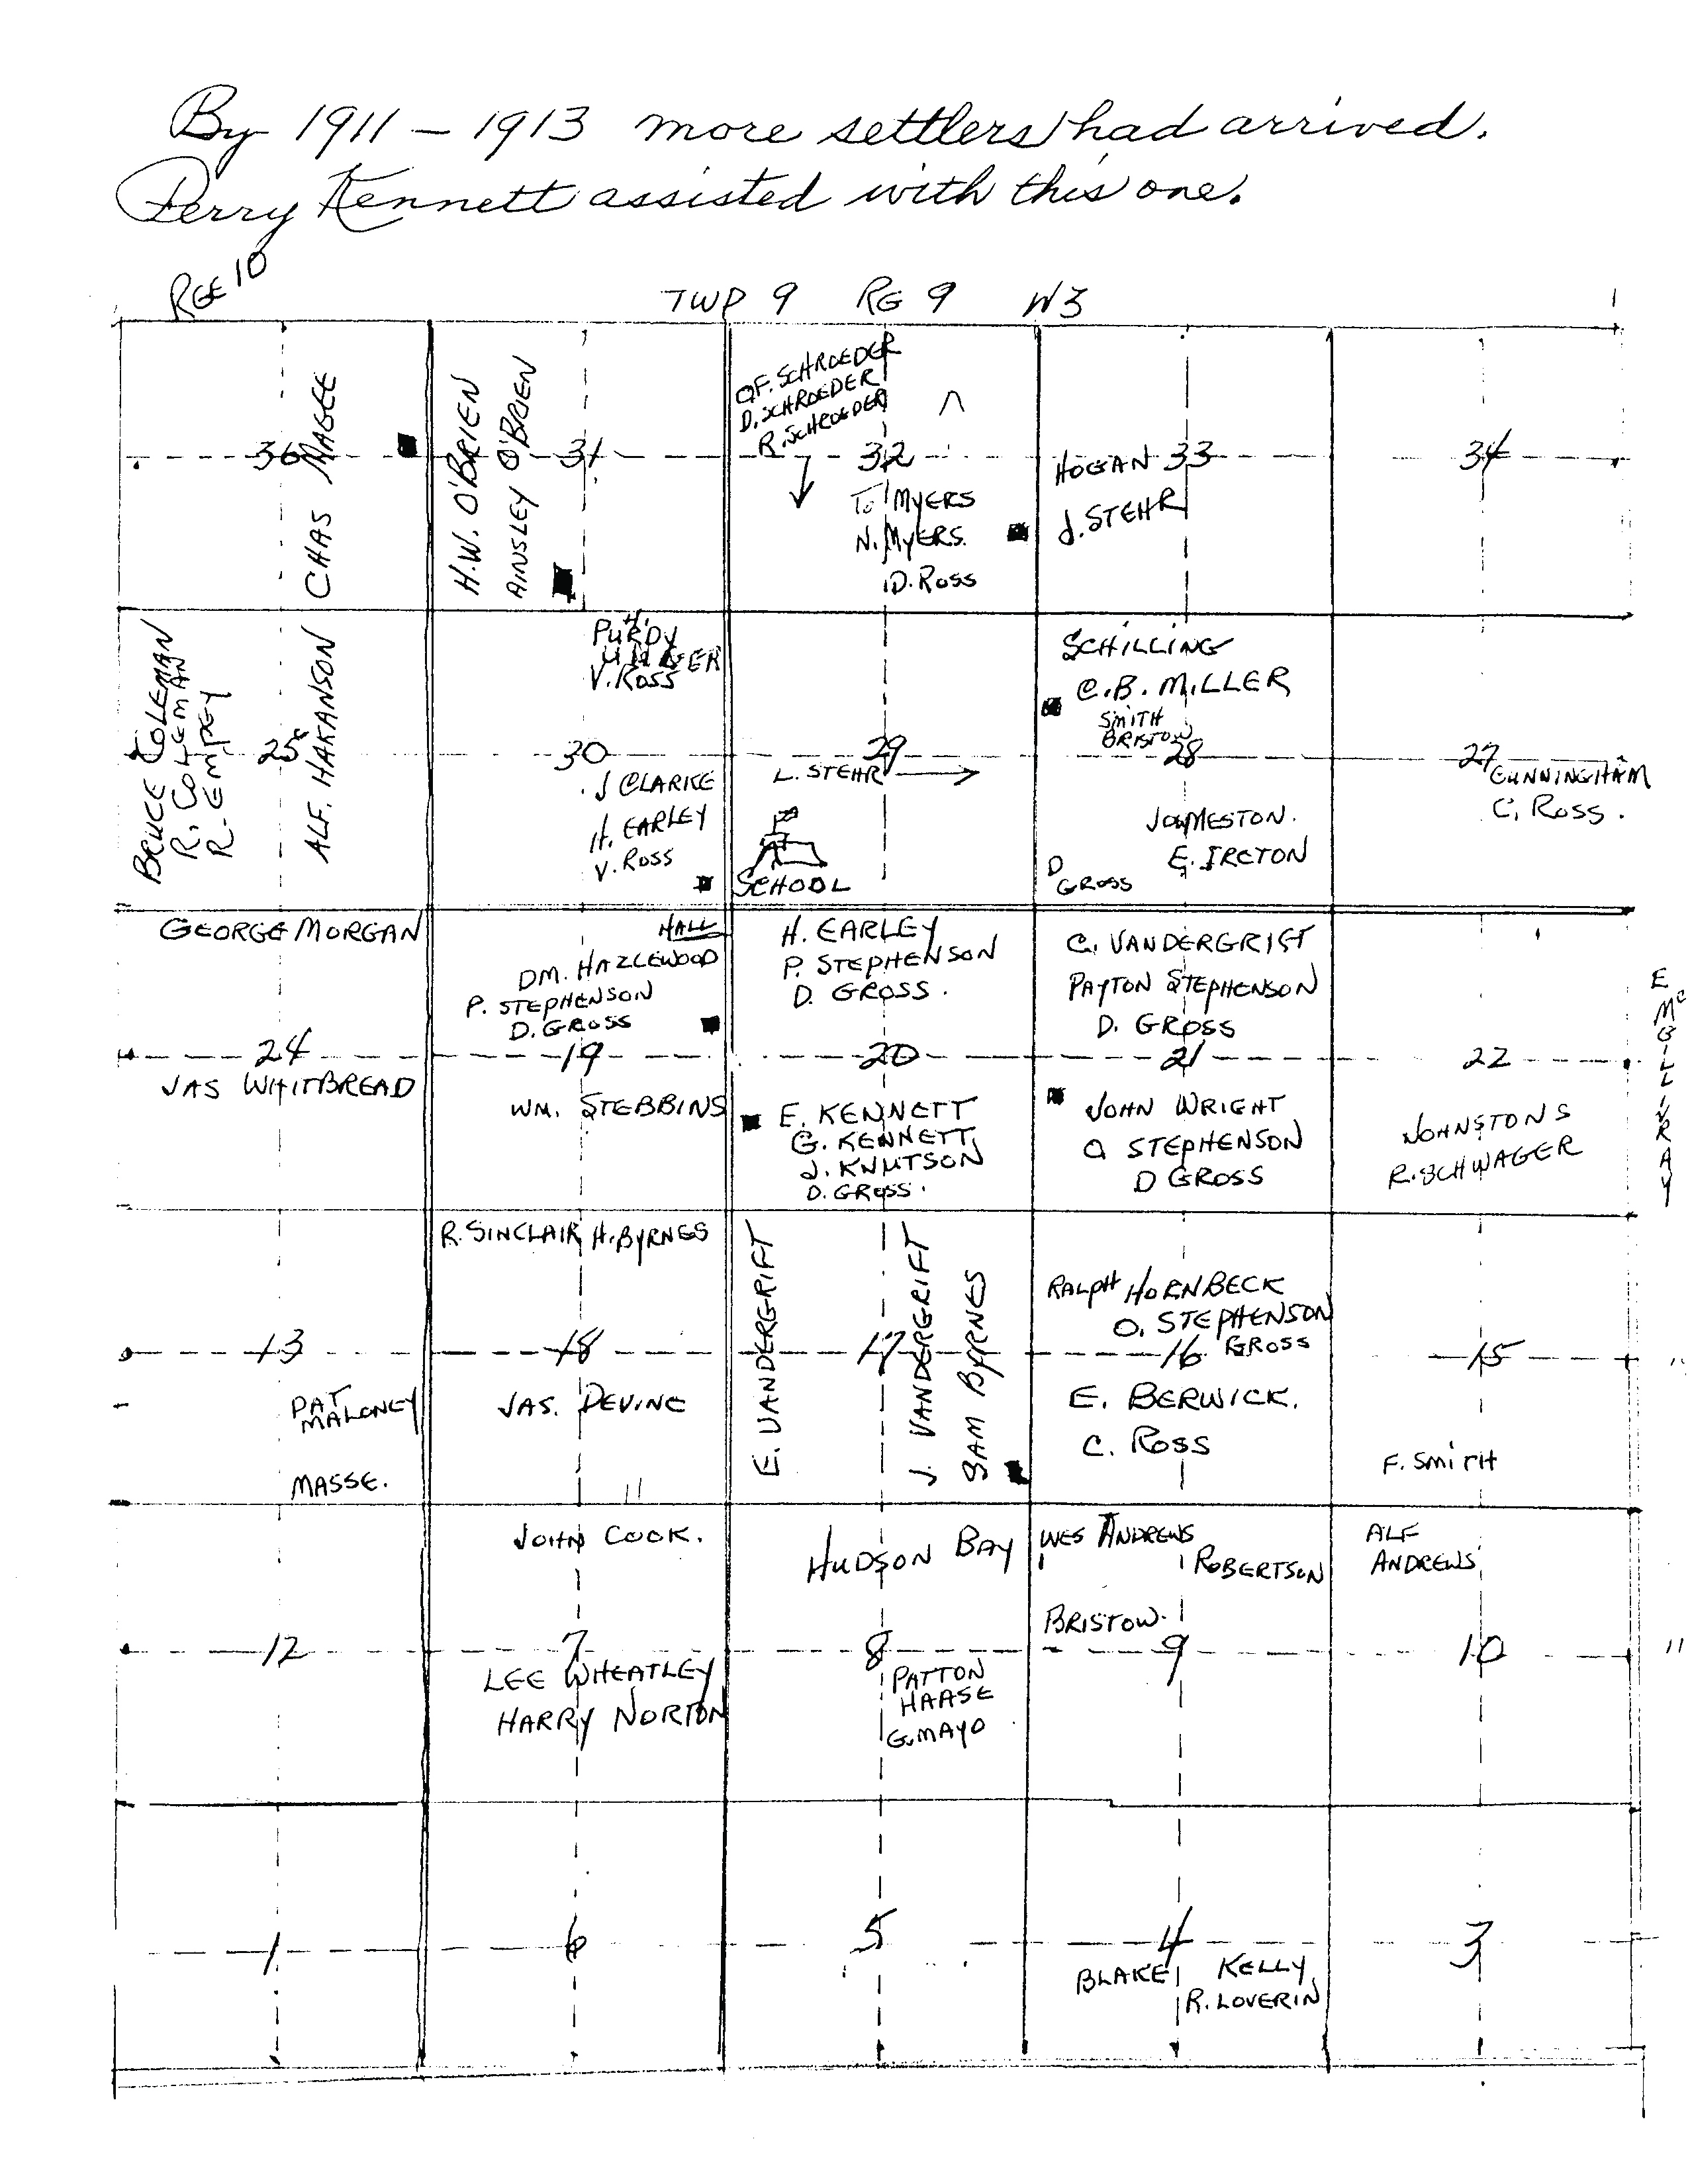 By 1911 – 1913 more settlers had arrived.
Perry Kennett assisted with this one.
RGE 10
TWP 9 RG 9 W3
36
CHAS MAGEE
H.W. O'BRIEN
AINSLEY O'BRIEN
31
F. SCHROEDER
D. SCHROEDER
R. SCHROEDER
32
To MYERS
N. MYERS.
D. ROSS
HOGAN 33
J. STEHR
34
BRUCE COLEMAN
R. COLEMAN
R. EMPEY
25
ALF. HAKANSON
H.
PURDY
V. ROSS
30
J CLARKE
H. EARLEY
V. ROSS
29
L. STEHR
SCHOOL
SCHILLING
C.B. MILLER
SMITH
BRISTOW
28
E. IRETON
D
GROSS
27
CUNNINGHAM
C. ROSS.
GEORGE MORGAN
24
JAS WHITBREAD
HALL
DM. HAZLEWOOD
P. STEPHENSON
D. GROSS
19
WM. STEBBINS
H. EARLEY
P. STEPHENSON
D. GROSS.
20
E. KENNETT
G. KENNETT
J. KNUTSON
D. GROSS.
C. VANDERGRIFT
PAYTON STEPHENSON
D. GROSS
21
JOHN WRIGHT
O STEPHENSON
D GROSS
22
JOHNSTONS
R. SCHWAGER
E McGILLIVRAY
13
PAT
MALONEY
MASSE.
R. SINCLAIR H. BYRNES
18
JAS. DEVINE
11
E. VANDERGRIFT
17
J. VANDERGRIFT
SAM BYRNES
RALPH HORNBECK
O. STEPHENSON
GROSS
16
E. BERWICK.
C. ROSS
15
F. SMITH
12
JOHN COOK.
7
LEE WHEATLEY
HARRY NORTON
HUDSON BAY
8
PATTON
HAASE
G. MAYO
WES ANDREWS
ROBERTSON
BRISTOW.
9
ALF
ANDREWS
10
11
1
6
5
4
BLAKE KELLY
R. LOVERIN
3